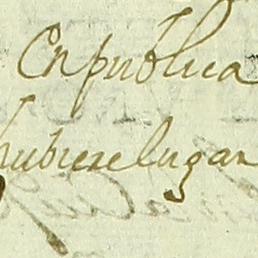 En publica
hubiese lugar